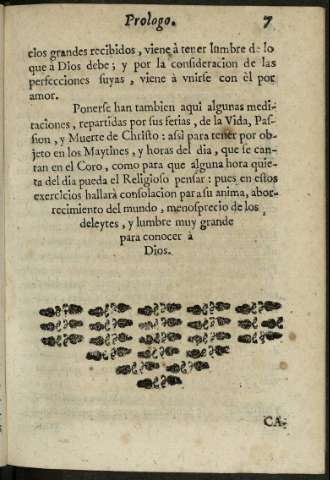 Prologo. 7
elos grandes recibidos, viene à tener lumbre de lo
que à Dios debe; y por la consideracion de las
perfecciones suyas, viene à vnirse con èl por
amor.
Ponerse han tambien aqui algunas medi-
taciones, repartidas por sus ferias, de la Vida, Pas-
sion, y Muerte de Christo: assi para tener por ob-
jeto en los Maytines, y horas del dia, que se can-
tan en el Coro, como para que alguna hora quie-
ta del dia pueda el Religioso pensar: pues en estos
exercicios hallarà consolacion para su anima, abor-
recimiento del mundo, menosprecio de los
deleytes, y lumbre muy grande
para conocer à
Dios.
CA-